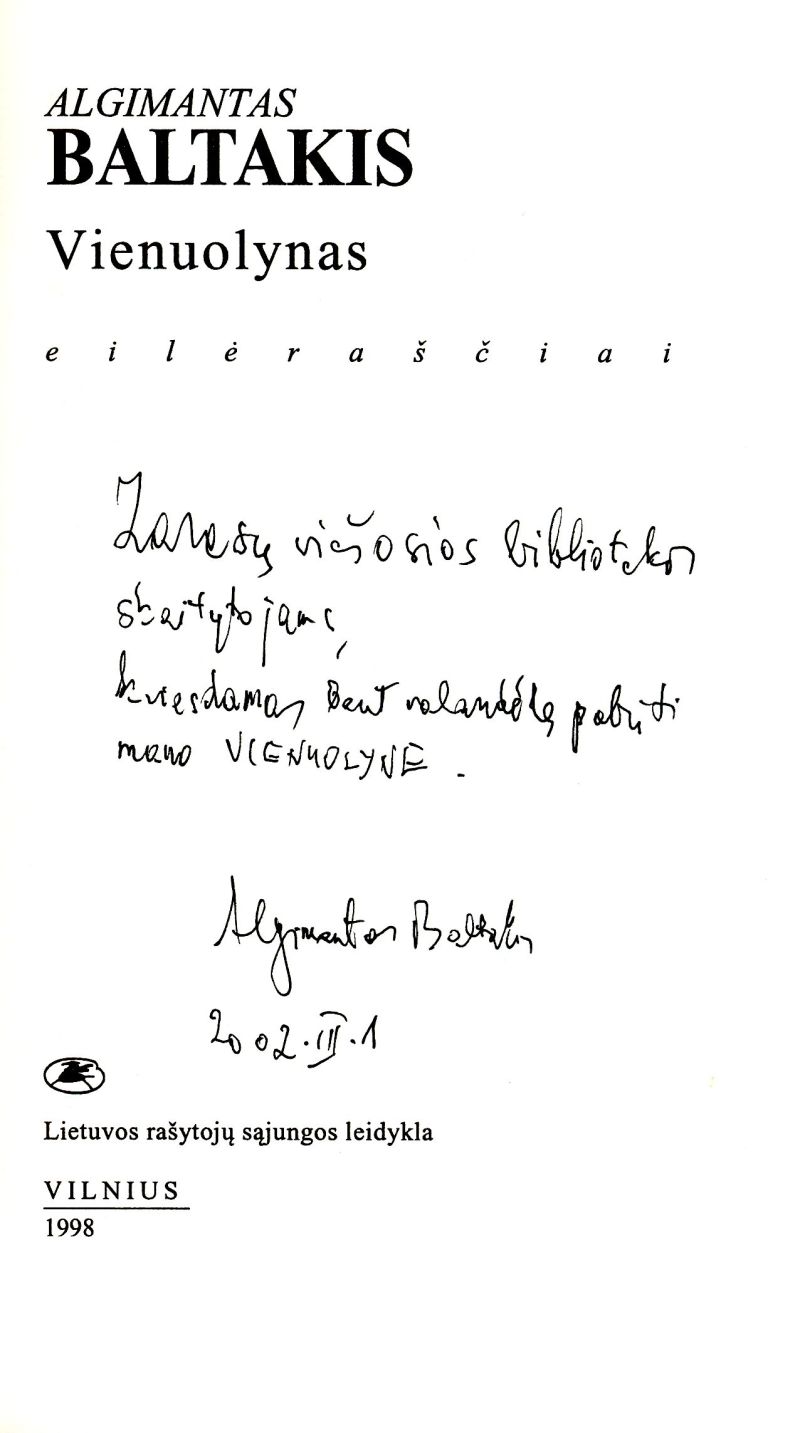 ALGIMANTAS
BALTAKIS
Vienuolynas
eilėraščiai
Zarasų viešosios bibliotekos
skaitytojams,
kviesdamas bent valandėlę pabūti
mano VIENUOLYNE.
Algimantas Baltakis
2002.III.1
Lietuvos rašytojų sąjungos leidykla
VILNIUS
1998